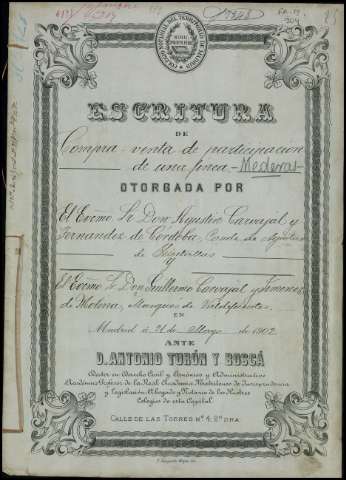 COLEGIO NOTARIAL DEL TERRITORIO DE MADRID
NIHIL PRIUS FIDE
ESCRITURA
DE
Compra-venta de participacion
de una finca - Mederas
OTORGADA POR
El Excmo Sr Don Agustin Carvajal y
Fernandez de Córdoba, Conde de
de
y
El Excmo Sr Don Guillermo Carvajal y Jimenez
de Molina, Marqués de
EN
Madrid á 21 de Mayo de 1902
ANTE
D. ANTONIO TURÓN Y BOSCÁ
Doctor en Derecho Civil y Canónico y Administrativo
Académico Profesor de la Real Academia Matritense de Jurisprudencia
y Legislación Abogado y Notario de los Ilustres
Colegios de esta Capital
CALLE DE LAS TORRES Nº 4, 2º DRA.